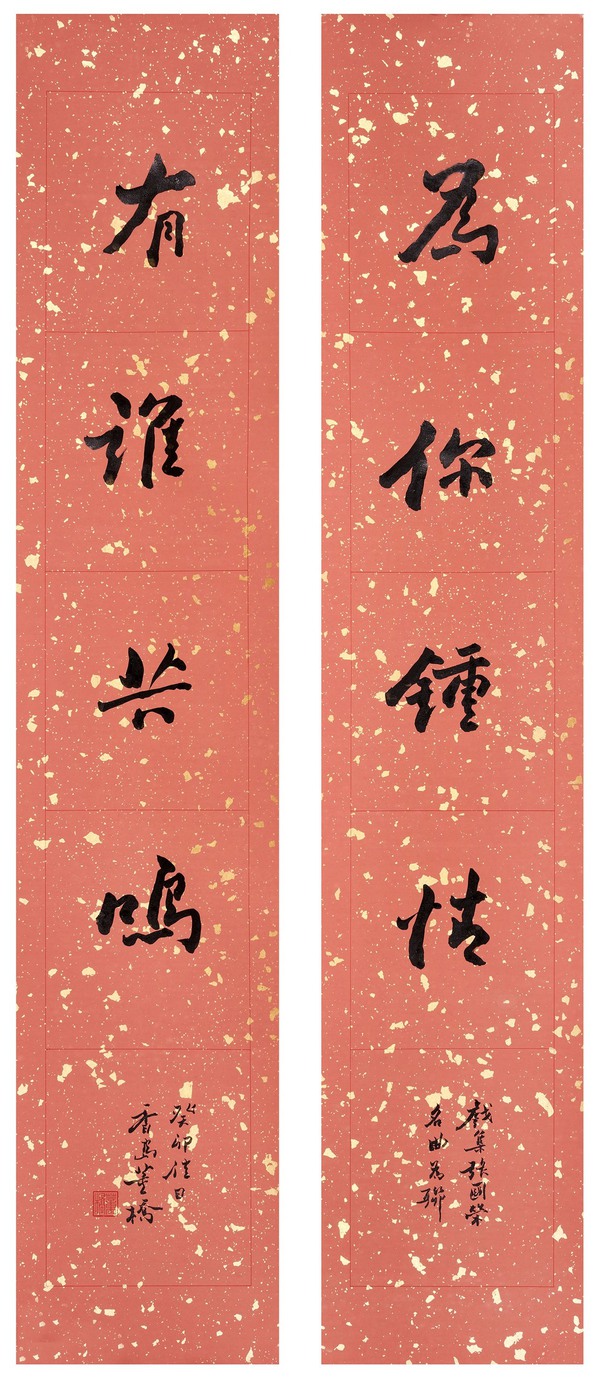 為你鍾情
戲集張國榮
名曲為聯
有誰共鳴
癸卯佳日
香島董橋